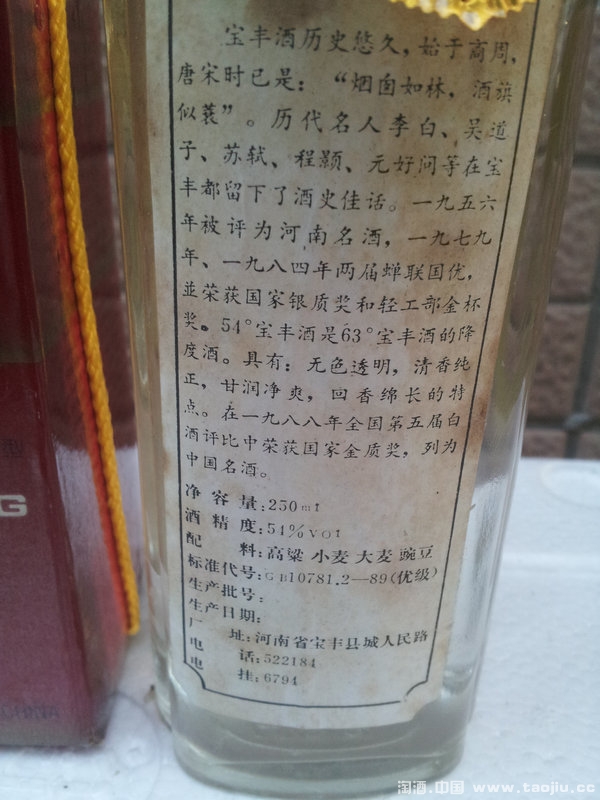 宝丰酒历史悠久，始于商周，
唐宋时已是：“烟囱如林，酒旗
似蓑”。历代名人李白、吴道
子、苏轼、程颢、元好问等在宝
丰都留下了酒史佳话。一九五六
年被评为河南名酒，一九七九
年、一九八四年两届蝉联国优，
並荣获国家银质奖和轻工部金杯
奖。54°宝丰酒是63°宝丰酒的降
度酒。具有：无色透明，清香纯
正，甘润净爽，回香绵长的特
点。在一九八八年全国第五届白
酒评比中荣获国家金质奖，列为
中国名酒。
净容量:250ml
酒精度:54%VOl
配料:高粱 小麦 大麦 豌豆
标准代号:GB10781.2—89(优级)
生产批号:
生产日期:
厂址:河南省宝丰县城人民路
电话:522184
电挂:6794
G
淘酒.中国 www.taojiu.cc